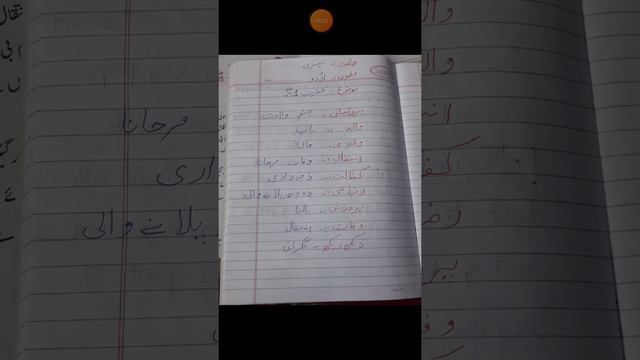 جماعت:۔ تیسری
مضمون:۔ اُردو
پیدائش:۔ جنم ولادت
والد:۔ باپ
والدہ:۔ ماں
انتقال:۔ وفات مرجانا
کفالت:۔ ذمہ داری
رضاعی:۔ دودھ پلانے والی
پرورش:۔ پالنا
وفات:۔ انتقال
دیکھ ریکھ:۔ نگرانی